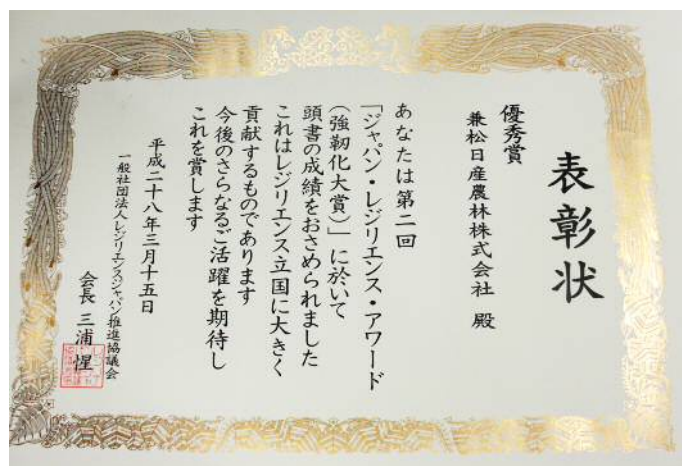 表彰状
優秀賞
兼松日産農林株式会社 殿
あなたは第二回
「ジャパン・レジリエンス・アワード
(強靭化大賞)」に於いて
頭書の成績をおさめられました
これはレジリエンス立国に大きく
貢献するものであります
今後のさらなるご活躍を期待し
これを賞します
平成二十八年三月十五日
一般社団法人レジリエンスジャパン推進協議会
会長 三浦 惺